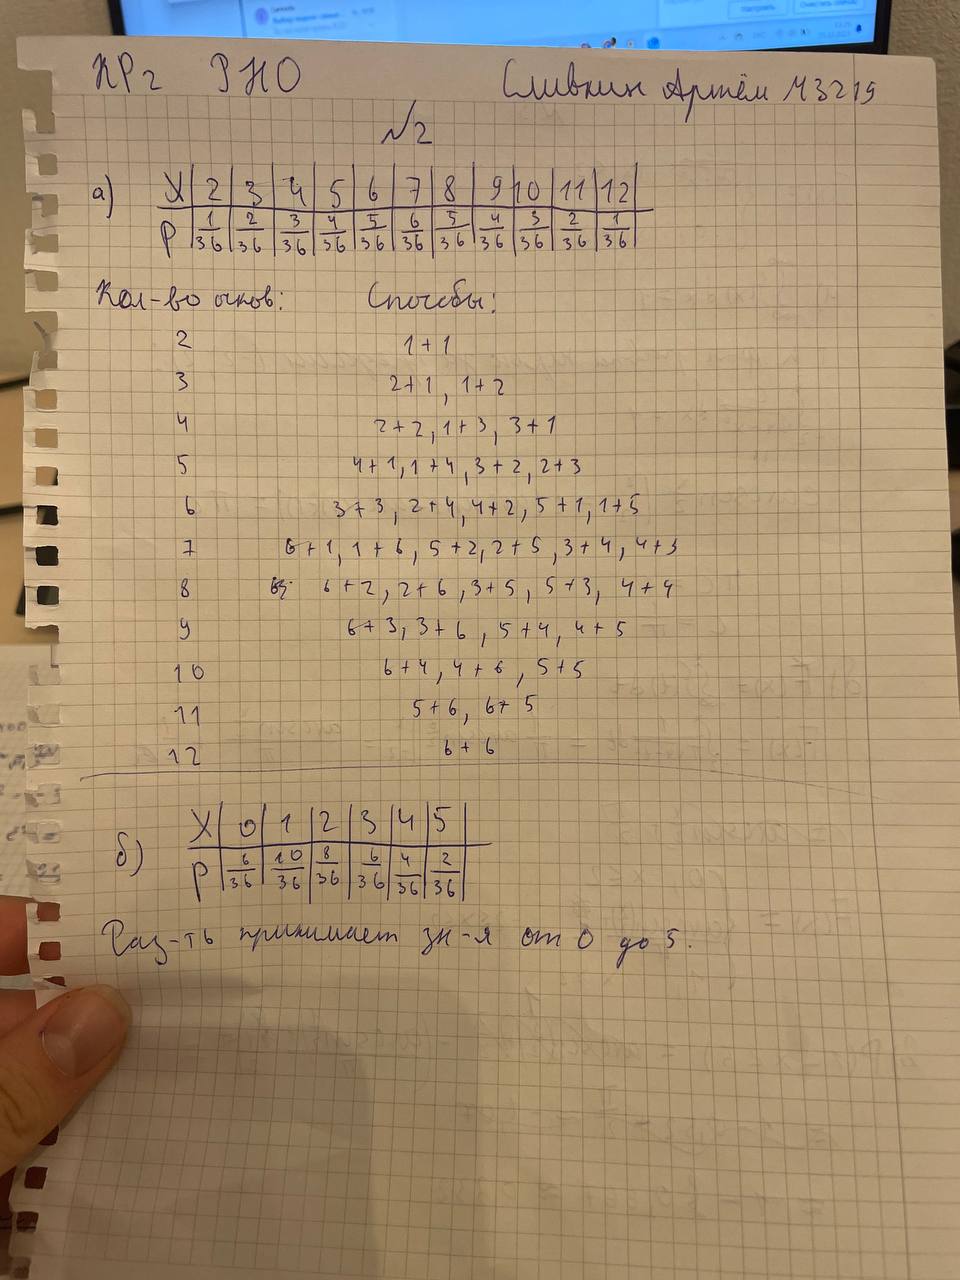 КР2 РНО Сливкин Артём М3219
№2
а) X 2 3 4 5 6 7 8 9 10 11 12
P 1/36 2/36 3/36 4/36 5/36 6/36 5/36 4/36 3/36 2/36 1/36
Кол-во очков: Способы:
2 1+1
3 2+1, 1+2
4 2+2, 1+3, 3+1
5 4+1, 1+4, 3+2, 2+3
6 3+3, 2+4, 4+2, 5+1, 1+5
7 6+1, 1+6, 5+2, 2+5, 3+4, 4+3
8 6+2, 2+6, 3+5, 5+3, 4+4
9 6+3, 3+6, 5+4, 4+5
10 6+4, 4+6, 5+5
11 5+6, 6+5
12 6+6
б) X 0 1 2 3 4 5
P 6/36 10/36 8/36 6/36 4/36 2/36
Раз-ть принимает зн-я от 0 до 5.